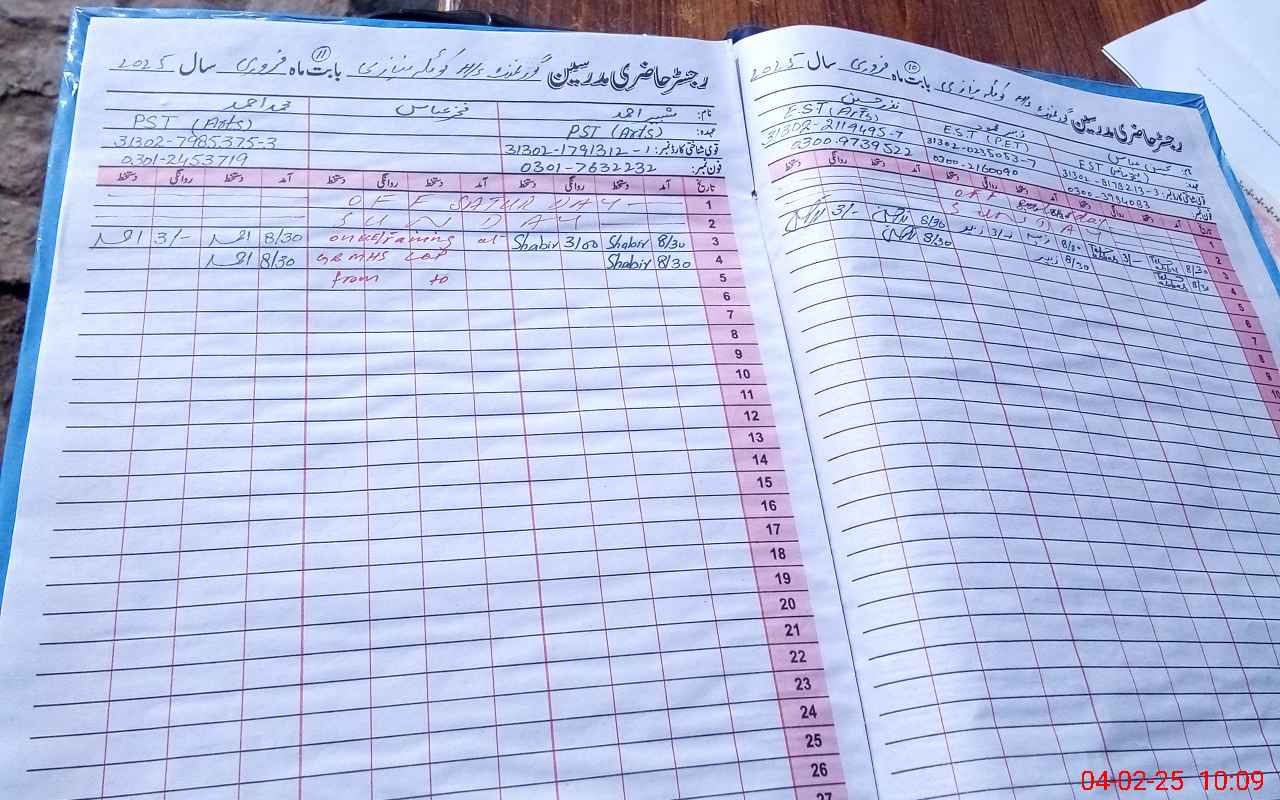 رجسٹر حاضری مدرسین گورنمنٹ H/S کوٹلہ نیازی بابت ماہ فروری سال 2025
11
نام: شبیر احمد فخر عباس محمد احمد
عہدہ: PST (Arts) PST (Arts)
قومی شناختی کارڈ نمبر: 31302-1791312-1 31302-7985375-3
فون نمبر: 0301-7632232 0301-2453719
تاریخ آمد دستخط روانگی دستخط آمد دستخط روانگی دستخط آمد دستخط روانگی دستخط
1 OFF SATURDAY
2 SUNDAY
3 8/30 Shabir 3/00 Shabir on training at 8/30 احمد 3/- احمد
4 8/30 Shabir 8/30 احمد
5 from to
6
7
8
9
10
11
12
13
14
15
16
17
18
19
20
21
22
23
24
25
26
27
رجسٹر حاضری مدرسین گورنمنٹ H/S بابت ماہ فروری سال 2025
10
نام: محسن عباس نذر حسین
عہدہ: EST EST (PET) EST (Arts)
قومی شناختی کارڈ نمبر: 31302-8178213-3 31302-0235053-7 31302-2119495-7
فون نمبر: 0300-3794083 0300-2160090 0300-9739522
تاریخ آمد دستخط روانگی دستخط آمد دستخط روانگی دستخط آمد دستخط روانگی
1 OFF Saturday
2 SUNDAY
3 8/30 3/- 8/30 زبیر 3/- زبیر 8/30 3/-
4 8/30 8/30 زبیر 8/30
5
6
7
8
9
10
04-02-25 10:09